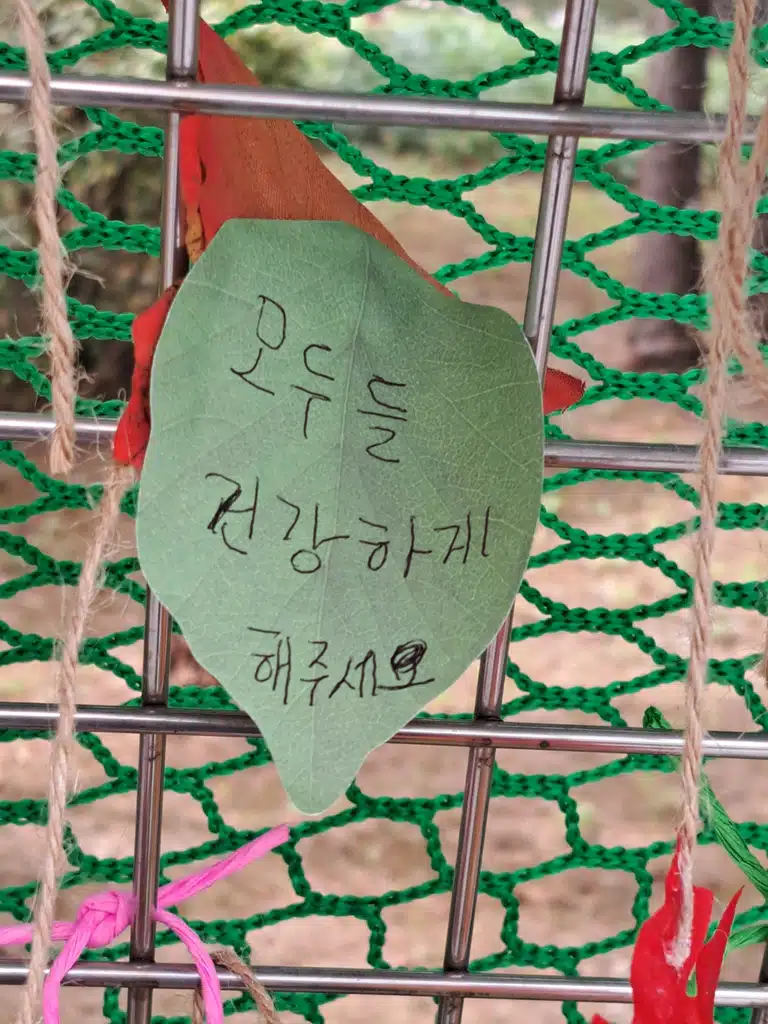 모두들
건강하게
해주세요